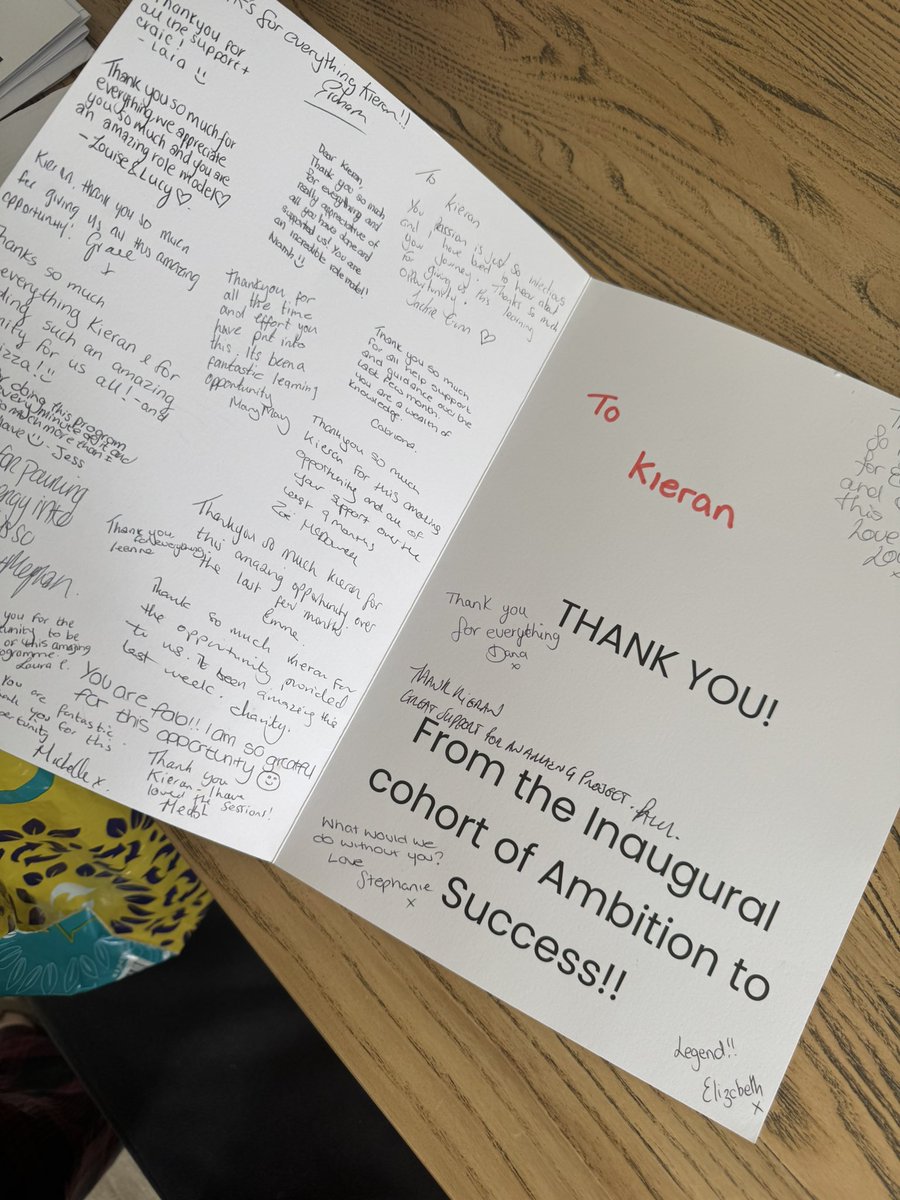 Thank you for
all the support +
craic!
- Lara
for everything Kieran!!
Thank you so much for
everything, we appreciate
you so much and you are
an amazing role model ♡
- Louise & Lucy ♡
Kieran, thank you so much
for giving us all this amazing
opportunity! Grace
x
Thanks so much
everything Kieran & for
such an amazing
for us all! - and
doing this program
every minute of it and
so much more than I
Jess
for pouring
into
Megan.
Dear Kieran,
Thank you so much
for everything and
really appreciative of
all you have done and
supported us! You are
an incredible role model!
Niamh
To Kieran
Your passion is just so infectious
and I have loved to hear about
your journey. Thanks so much
for giving us this learning
opportunity.
Jackie
♡
Thank you for
all the time
and effort you
have put into
this. Its been a
fantastic learning
opportunity
Mary May
Thank you so much
for all help & support
and guidance over the
last few months
you are a wealth of
knowledge.
Catriona.
Thank you so much
Kieran for this amazing
opportunity and all of
your support over the
last 9 months
Zoe
Thank you so much Kieran for
this amazing opportunity over
the last few months.
Emma
Thank you
for everything
Leanne
Thanks so much Kieran for
the opportunity provided
to us. It been amazing the
last week. Charity.
you for the
to be
of this amazing
programme.
Laura
You are fab!! I am so grateful
for this opportunity
You are fantastic.
you for this
Michelle x.
Thank you
Kieran - I have
loved the sessions!
To
Kieran
THANK YOU!
Thank you
for everything
Dana
x
THANK KIERAN
GREAT SUPPORT FOR AN AMAZING PROJECT. Paul.
From the Inaugural
cohort of Ambition to
Success!!
What would we
do without you?
Love
Stephanie
x
so
for
and
this
Love
Legend!!
Elizabeth
x